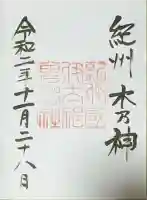 紀州 木乃神
令和二年十一月二十八日